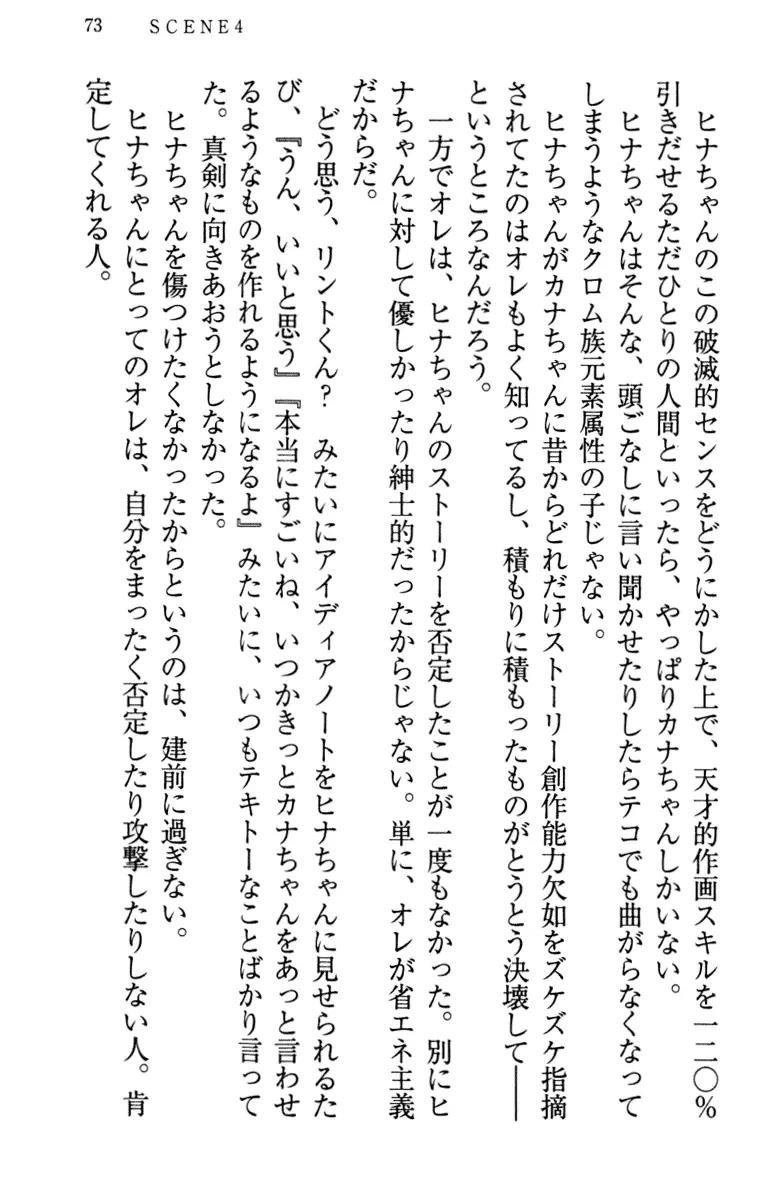 73　SCENE4
　ヒナちゃんのこの破滅的センスをどうにかした上で、天才的作画スキルを一二〇％
引きだせるただひとりの人間といったら、やっぱりカナちゃんしかいない。
　ヒナちゃんはそんな、頭ごなしに言い聞かせたりしたらテコでも曲がらなくなって
しまうようなクロム族元素属性の子じゃない。
　ヒナちゃんがカナちゃんに昔からどれだけストーリー創作能力欠如をズケズケ指摘
されてたのはオレもよく知ってるし、積もりに積もったものがとうとう決壊して――
というところなんだろう。
　一方でオレは、ヒナちゃんのストーリーを否定したことが一度もなかった。別にヒ
ナちゃんに対して優しかったり紳士的だったからじゃない。単に、オレが省エネ主義
だからだ。
　どう思う、リントくん？　みたいにアイディアノートをヒナちゃんに見せられるた
び、『うん、いいと思う』『本当にすごいね、いつかきっとカナちゃんをあっと言わせ
るようなものを作れるようになるよ』みたいに、いつもテキトーなことばかり言って
た。真剣に向きあおうとしなかった。
　ヒナちゃんを傷つけたくなかったからというのは、建前に過ぎない。
　ヒナちゃんにとってのオレは、自分をまったく否定したり攻撃したりしない人。肯
定してくれる人。